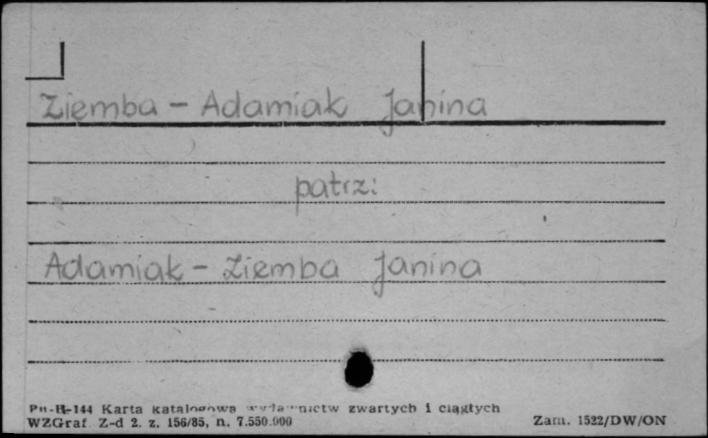 Ziemba - Adamiak Janina
patrz:
Adamiak - Ziemba Janina
Pu-H-144 Karta katalogowa wydawnictw zwartych i ciągłych
WZGraf. Z-d 2. z. 156/85, n. 7.550.000 Zam. 1522/DW/ON